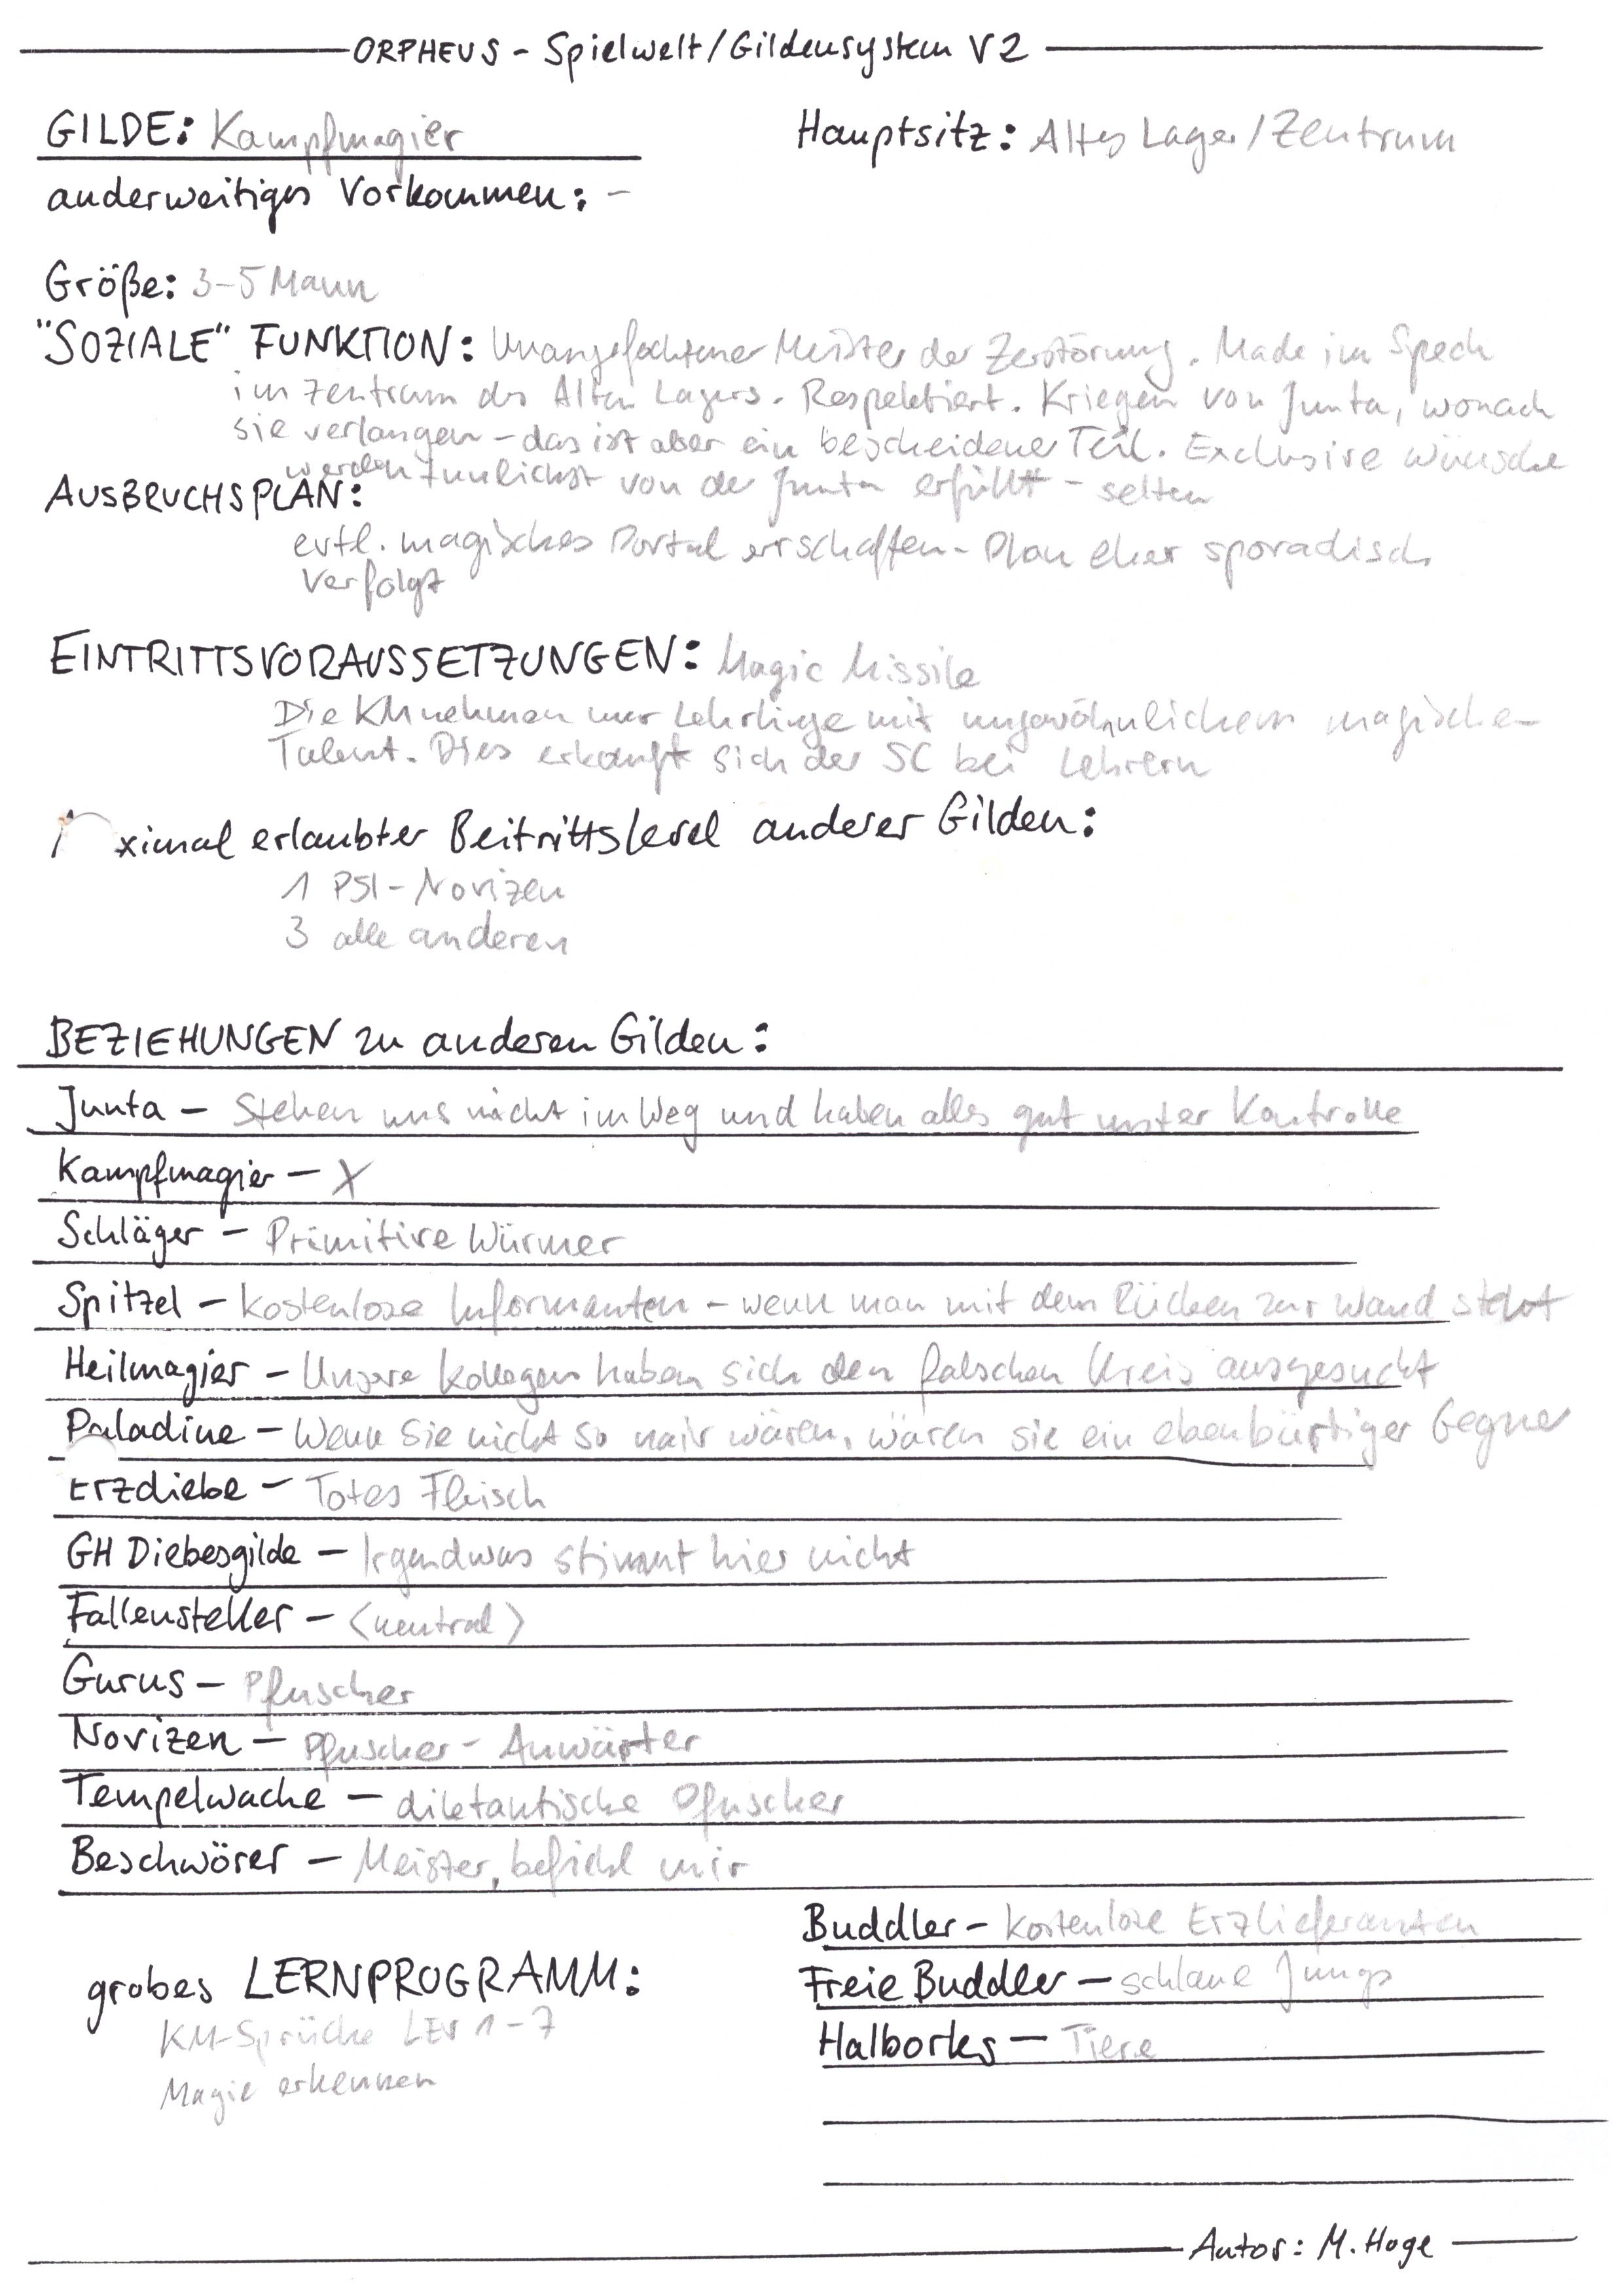 ORPHEUS - Spielwelt/Gildensystem V2
GILDE: Kampfmagier
Hauptsitz: Altes Lager/Zentrum
anderweitiges Vorkommen: -
Größe: 3-5 Mann
"SOZIALE" FUNKTION: Unangefochtener Meister der Zerstörung. Made im Speck
im Zentrum des Alten Lagers. Respektiert. Kriegen von Junta, wonach
sie verlangen - das ist aber ein bescheidener Teil. Exclusive Wünsche
werden tunlichst von der Junta erfüllt - selten
AUSBRUCHSPLAN:
evtl. magisches Portal erschaffen - Plan eher sporadisch
verfolgt
EINTRITTSVORAUSSETZUNGEN: Magic Missile
Die KM nehmen nur Lehrlinge mit ungewöhnlichem magische-
Talent. Dies erkauft sich der SC bei Lehrern
ximal erlaubter Beitrittslevel anderer Gilden:
1 PSI-Novizen
3 alle anderen
BEZIEHUNGEN zu anderen Gilden:
Junta - Stehen uns nicht im Weg und haben alles gut unter Kontrolle
Kampfmagier - X
Schläger - Primitive Würmer
Spitzel - kostenlose Informanten - wenn man mit dem Rücken zur Wand steht
Heilmagier - Unsere Kollegen haben sich den falschen Kreis ausgesucht
Paladine - Wenn sie nicht so naiv wären, wären sie ein ebenbürtiger Gegner
Erzdiebe - Totes Fleisch
GH Diebesgilde - Irgendwas stimmt hier nicht
Fallensteller - <neutral>
Gurus - Pfuscher
Novizen - Pfuscher-Anwärter
Tempelwache - diletantische Pfuscher
Beschwörer - Meister, befiehl mir
Buddler - kostenlose Erzlieferanten
Freie Buddler - schlaue Jungs
Halborks - Tiere
grobes LERNPROGRAMM:
KM-Sprüche LEV 1-7
Magie erkennen
Autor: M. Hoge